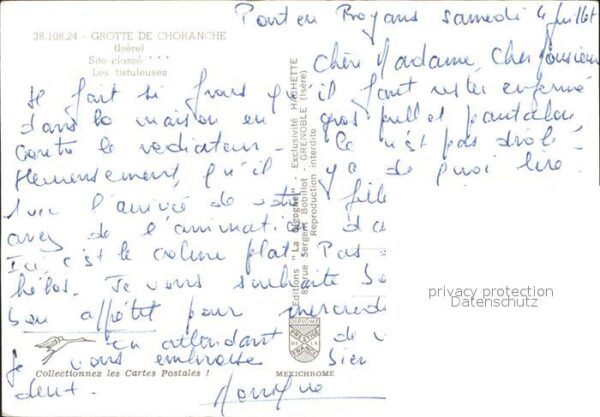 Pont en Royans samedi 4 juillet
38.108.24 - GROTTE DE CHORANCHE
(Isère)
Site classé ***
Les fistuleuses
Chère Madame, Cher Monsieur
Il fait si frais qu'il faut rester enfermé
dans la maison en gros pull et pantalon
contre le radiateur - Ce n'est pas drôle.
Heureusement, qu'il y a de quoi lire.
Avec l'arrivée de votre fille
avez de l'animation
Ici c'est le calme plat. Pas
hélas. Je vous souhaite
bon appétit pour mercredi
En attendant de
Je vous embrasse bien
Monique
Editions "La Cigogne" Exclusivité HACHETTE
rue Sergent Bobillot - GRENOBLE (Isère)
Reproduction interdite
DIPLOME
PRESTIGE
DE LA
FRANCE
Collectionnez les Cartes Postales !
MEXICHROME
privacy protection
Datenschutz